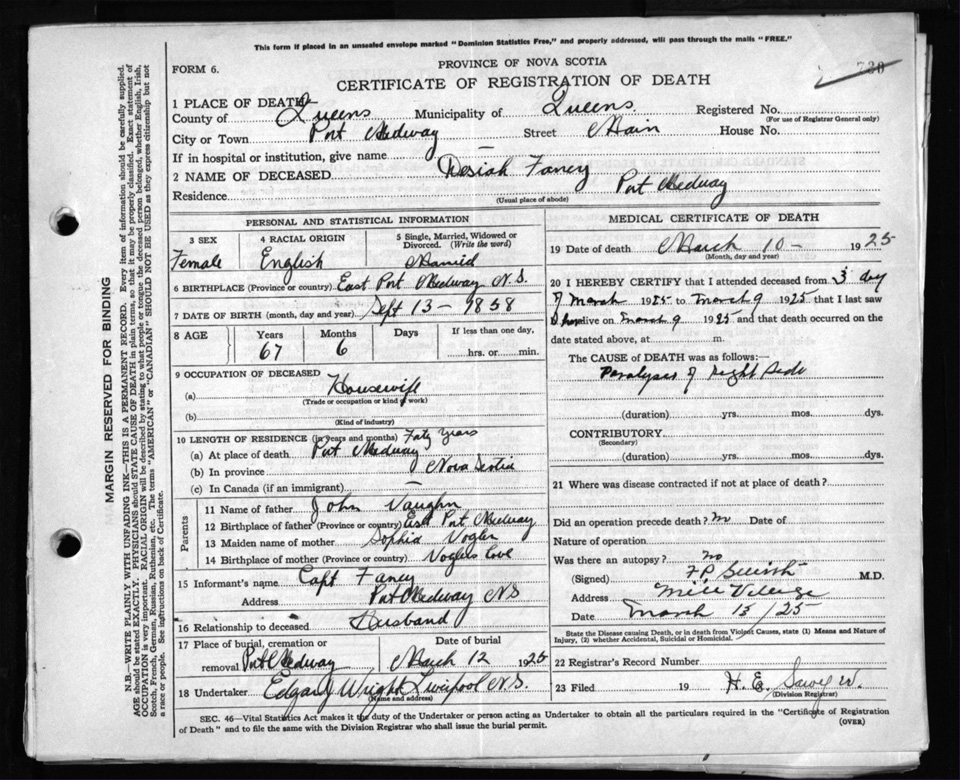 This form if placed in an unsealed envelope marked "Dominion Statistics Free," and properly addressed, will pass through the mails "FREE."
736
PROVINCE OF NOVA SCOTIA
FORM 6.
CERTIFICATE OF REGISTRATION OF DEATH
1 PLACE OF DEATH
County of Queens Municipality of Queens Registered No.
(For use of Registrar General only)
City or Town Port Medway Street Main House No.
If in hospital or institution, give name —
2 NAME OF DECEASED Desiah Fancy
Residence Port Medway
(Usual place of abode)
PERSONAL AND STATISTICAL INFORMATION
3 SEX 4 RACIAL ORIGIN 5 Single, Married, Widowed or Divorced. (Write the word)
Female English Married
6 BIRTHPLACE (Province or country) East Port Medway N.S.
7 DATE OF BIRTH (month, day and year) Sept 13 - 1858
8 AGE Years Months Days If less than one day,
67 6 hrs. or min.
9 OCCUPATION OF DECEASED
(a) Housewife
(Trade or occupation or kind of work)
(b)
(Kind of industry)
10 LENGTH OF RESIDENCE (in years and months) Forty Years
(a) At place of death Port Medway
(b) In province Nova Scotia
(c) In Canada (if an immigrant) —
Parents
11 Name of father John Vaughn
12 Birthplace of father (Province or country) East Port Medway
13 Maiden name of mother Sophia Vogler
14 Birthplace of mother (Province or country) Voglers Cove
15 Informant's name Capt Fancy
Address Port Medway NS
16 Relationship to deceased Husband
17 Place of burial, cremation or removal Port Medway Date of burial March 12 1925
18 Undertaker Edgar J Wright Liverpool N.S.
(Name and address)
MEDICAL CERTIFICATE OF DEATH
19 Date of death March 10 - 1925
(Month, day and year)
20 I HEREBY CERTIFY that I attended deceased from 3 day
of March 1925 to March 9 1925 that I last saw
h alive on March 9 1925 and that death occurred on the
date stated above, at m.
The CAUSE OF DEATH was as follows:—
Paralysis of right side
(duration) yrs. mos. dys.
CONTRIBUTORY
(Secondary)
(duration) yrs. mos. dys.
21 Where was disease contracted if not at place of death?
Did an operation precede death? no Date of
Nature of operation
Was there an autopsy? no
(Signed) F.P. M.D.
Address Mill Village
Date March 15/25
State the Disease causing Death, or in death from Violent Causes, state (1) Means and Nature of Injury, (2) whether Accidental, Suicidal or Homicidal.
22 Registrar's Record Number
23 Filed 19 H. E.
(Division Registrar)
SEC. 46—Vital Statistics Act makes it the duty of the Undertaker or person acting as Undertaker to obtain all the particulars required in the "Certificate of Registration
of Death" and to file the same with the Division Registrar who shall issue the burial permit.
(OVER)
MARGIN RESERVED FOR BINDING
N.B.—WRITE PLAINLY WITH UNFADING INK—THIS IS A PERMANENT RECORD. Every item of information should be carefully supplied.
AGE should be stated EXACTLY. PHYSICIANS should STATE CAUSE OF DEATH in plain terms, so that it may be properly classified. Exact statement of
OCCUPATION is very important. RACIAL ORIGIN will be described by stating to what people or tongue the deceased person belonged, whether English, Irish,
Scotch, French, German, Russian, Ruthenian, etc. The terms "AMERICAN" or "CANADIAN" SHOULD NOT BE USED as they express citizenship but not
a race or people. See instructions on back of Certificate.